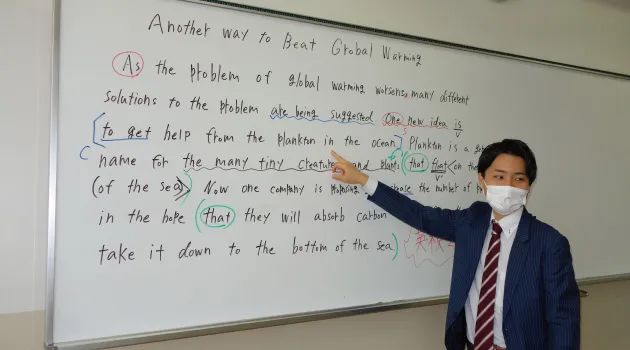 Another way to Beat Grobal Warming
As the problem of global warming worsens, many different
solutions to the problem are being suggested. One new idea is
to get help from the plankton in the ocean. Plankton is a
name for the many tiny creatures and plants that on the
of the sea. Now one company is the number of
in the hope that they will absorb carbon
take it down to the bottom of the sea
S
V
C
V'